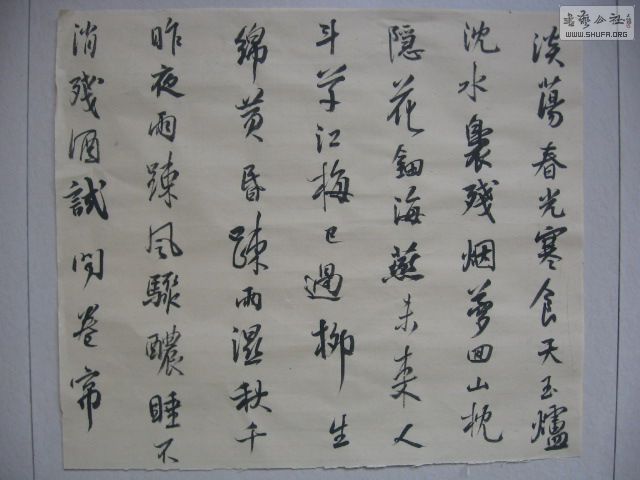 淡蕩春光寒食天玉爐
沈水裊殘烟夢回山枕
隐花鈿海燕未来人
斗草江梅已過柳生
綿黄昏踈雨濕秋千
昨夜雨踈风驟醲睡不
消殘酒試問卷帘
書藝公社
WWW.SHUFA.ORG